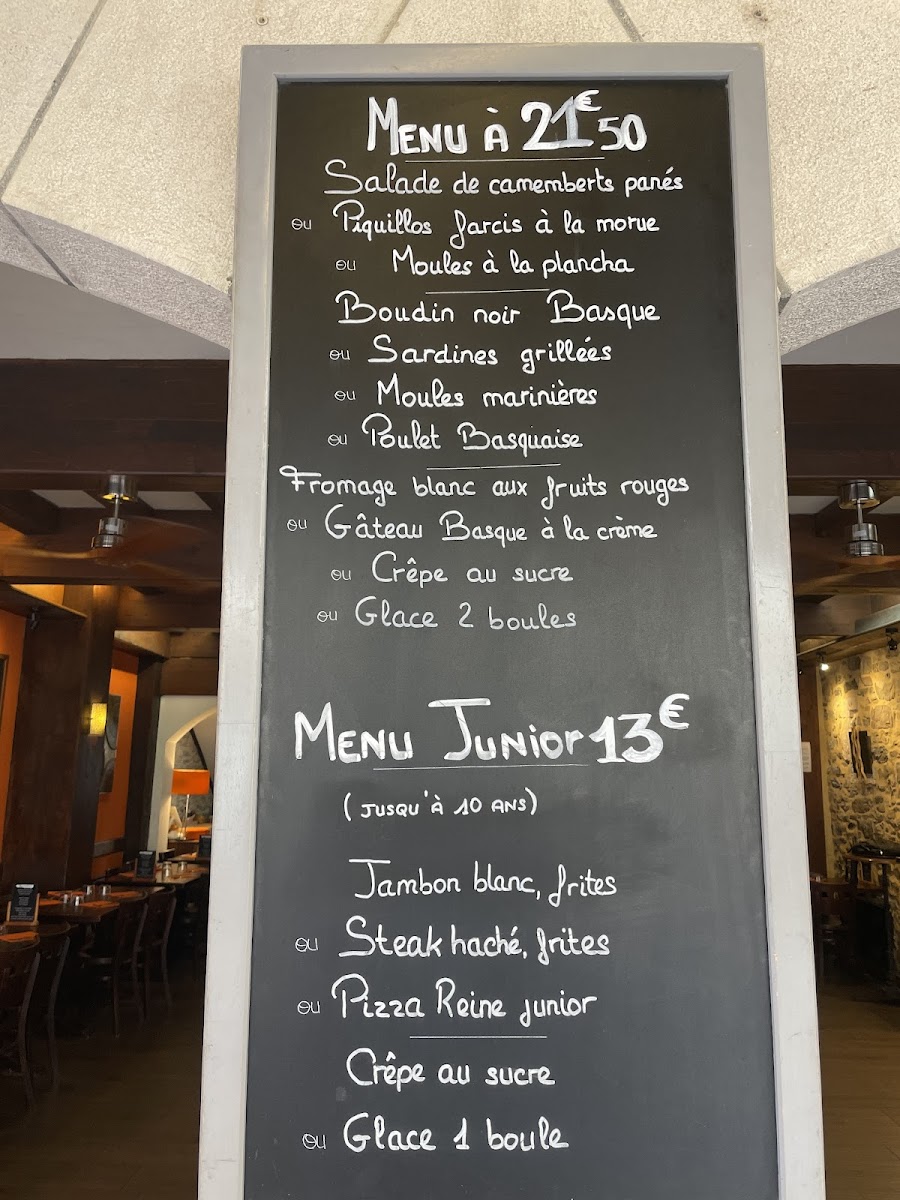 MENU À 21€50
Salade de camemberts panés
ou Piquillos farcis à la morue
ou Moules à la plancha
Boudin noir Basque
ou Sardines grillées
ou Moules marinières
ou Poulet Basquaise
Fromage blanc aux fruits rouges
ou Gâteau Basque à la crème
ou Crêpe au sucre
ou Glace 2 boules
MENU JUNIOR 13€
(JUSQU'À 10 ANS)
Jambon blanc, frites
ou Steak haché, frites
ou Pizza Reine junior
Crêpe au sucre
ou Glace 1 boule